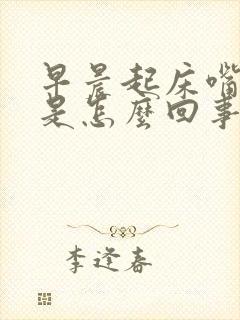 早晨起床嘴
是怎麼回事
李逢春